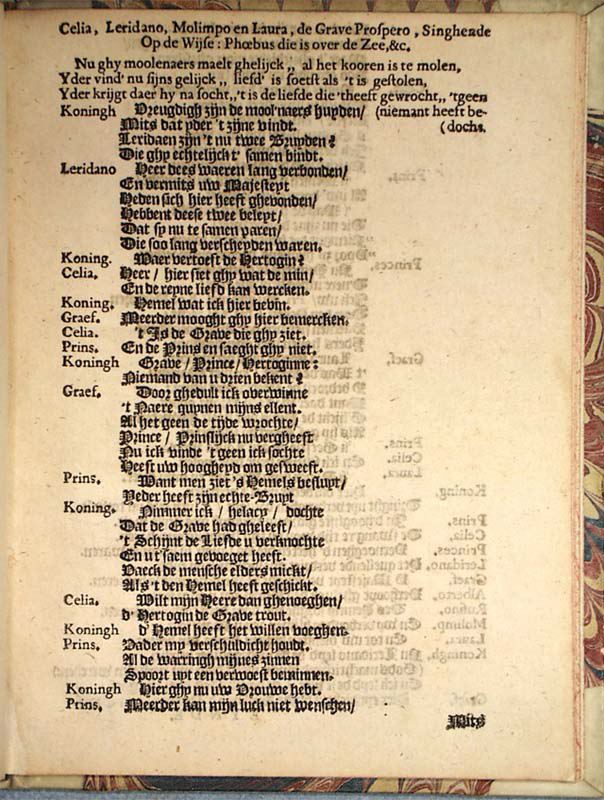 Celia, Leridano, Molimpo en Laura, de Grave Prospero, Singhende
Op de Wijse: Phœbus die is over de Zee, &c.
Nu ghy moolenaers maelt ghelijck,, al het kooren is te molen,
Yder vind' nu sijns gelijck,, liefd' is soetst als 't is gestolen,
Yder krijgt daer hy na socht,,'t is de liefde die 'theeft gewrocht,, 'tgeen
Koningh Vreugdigh zijn de mool'naers huyden/ (niemant heeft be-
Mits dat yder 't zijne vindt. (docht.
Leridaen zijn 't nu twee Bruyden?
Die ghy echtelijck t' samen bindt.
Leridano Heer dees waeren lang verbonden/
En vermits uw Majesteyt
Heden sich hier heeft ghevonden/
Hebbent deese twee beleyt/
Dat sy nu te samen paren/
Die soo lang verscheyden waren.
Koning. Waer vertoeft de Hertogin?
Celia. Heer/ hier siet ghy wat de min/
En de reyne liefd kan wercken.
Koning. Hemel wat ick hier bevin.
Graef. Meerder mooght ghy hier bemercken.
Celia. 't Is de Grave die ghy ziet.
Prins. En de Prins en saeght ghy niet.
Koningh Grave/ Prince/ Hertoginne:
Niemand van u drien bekent?
Graef. Door ghedult ick overwinne
't Naere quynen mijns ellent.
Al het geen de tijde wrochte/
Prince/ Prinslijck nu vergheeft
Nu ick vinde 't geen ick sochte
Heeft uw hoogheyd om gesweeft.
Prins. Want men ziet 's Hemels besluyt/
Yeder heeft zijn echte-Bruyt
Koning. Nimmer ick/ helacy/ dochte
Dat de Grave had gheleeft/
't Schijnt de Liefde u verknochte
En u t'saem gevoeget heeft.
Vaeck de mensche elders mickt/
Als 't den Hemel heeft geschickt.
Celia. Wilt mijn Heere dan ghenoeghen/
d' Hertogin de Grave trout.
Koningh d' Hemel heeft het willen voeghen.
Prins. Vader my verschuldicht houdt.
Al de warringh mijnes zinnen
Spoort uyt een verwoest beminnen.
Koningh Hier ghy nu uw Vrouwe hebt.
Prins. Meerder kan mijn luck niet wenschen/
Mits